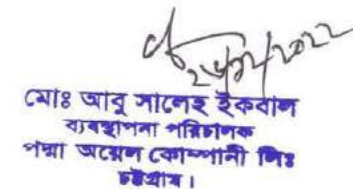 ২৮/১২/২০২২
মোঃ আবু সালেহ ইকবাল
ব্যবস্থাপনা পরিচালক
পদ্মা অয়েল কোম্পানী লিঃ
চট্টগ্রাম।